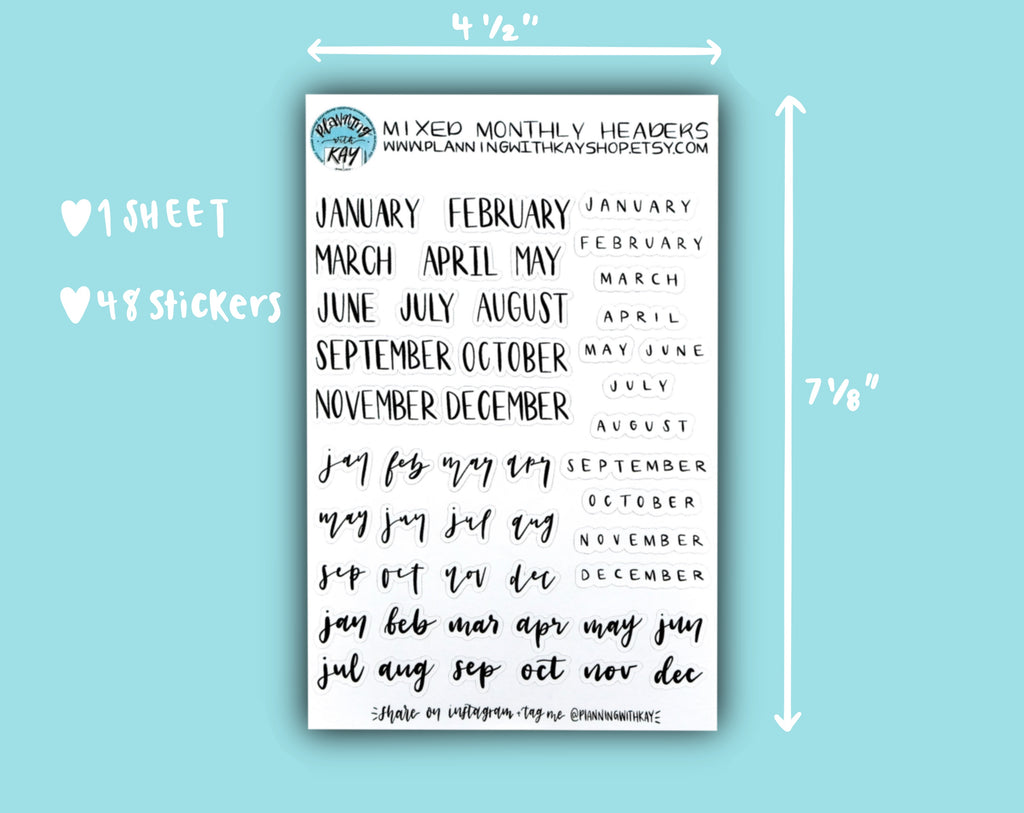 4 ½"
Planning
with
KAY
MIXED MONTHLY HEADERS
WWW.PLANNINGWITHKAYSHOP.ETSY.COM
♥1 SHEET
♥48 Stickers
7 ⅛"
JANUARY FEBRUARY
MARCH APRIL MAY
JUNE JULY AUGUST
SEPTEMBER OCTOBER
NOVEMBER DECEMBER
JANUARY
FEBRUARY
MARCH
APRIL
MAY JUNE
JULY
AUGUST
SEPTEMBER
OCTOBER
NOVEMBER
DECEMBER
jan feb mar apr
may jun jul aug
sep oct nov dec
jan feb mar apr may jun
jul aug sep oct nov dec
share on instagram + tag me @PLANNINGWITHKAY